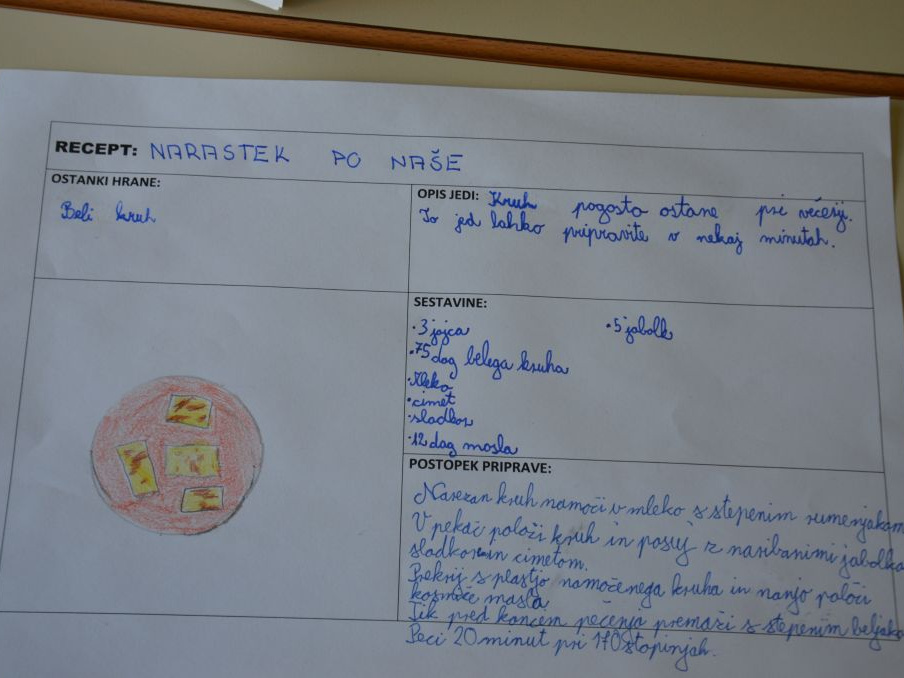 RECEPT: NARASTEK PO NAŠE
OSTANKI HRANE:
Beli kruh
OPIS JEDI: Kruh pogosto ostane pri večerji.
To jed lahko pripravite v nekaj minutah.
SESTAVINE:
• 3 jajca
• 75 dag belega kruha
• Mleko
• cimet
• sladkor
• 12 dag masla
• 5 jabolk
POSTOPEK PRIPRAVE:
Narezan kruh namoči v mleko s stepenim rumenjakom
V pekač položi kruh in posuj z naribanimi jabolka
sladkorin cimetom.
Prekrij s plastjo namočenega kruha in nanjo položi
kosmiče masla.
Tik pred koncem pečenja premaži s stepenim beljako
Peci 20 minut pri 170 stopinjah.